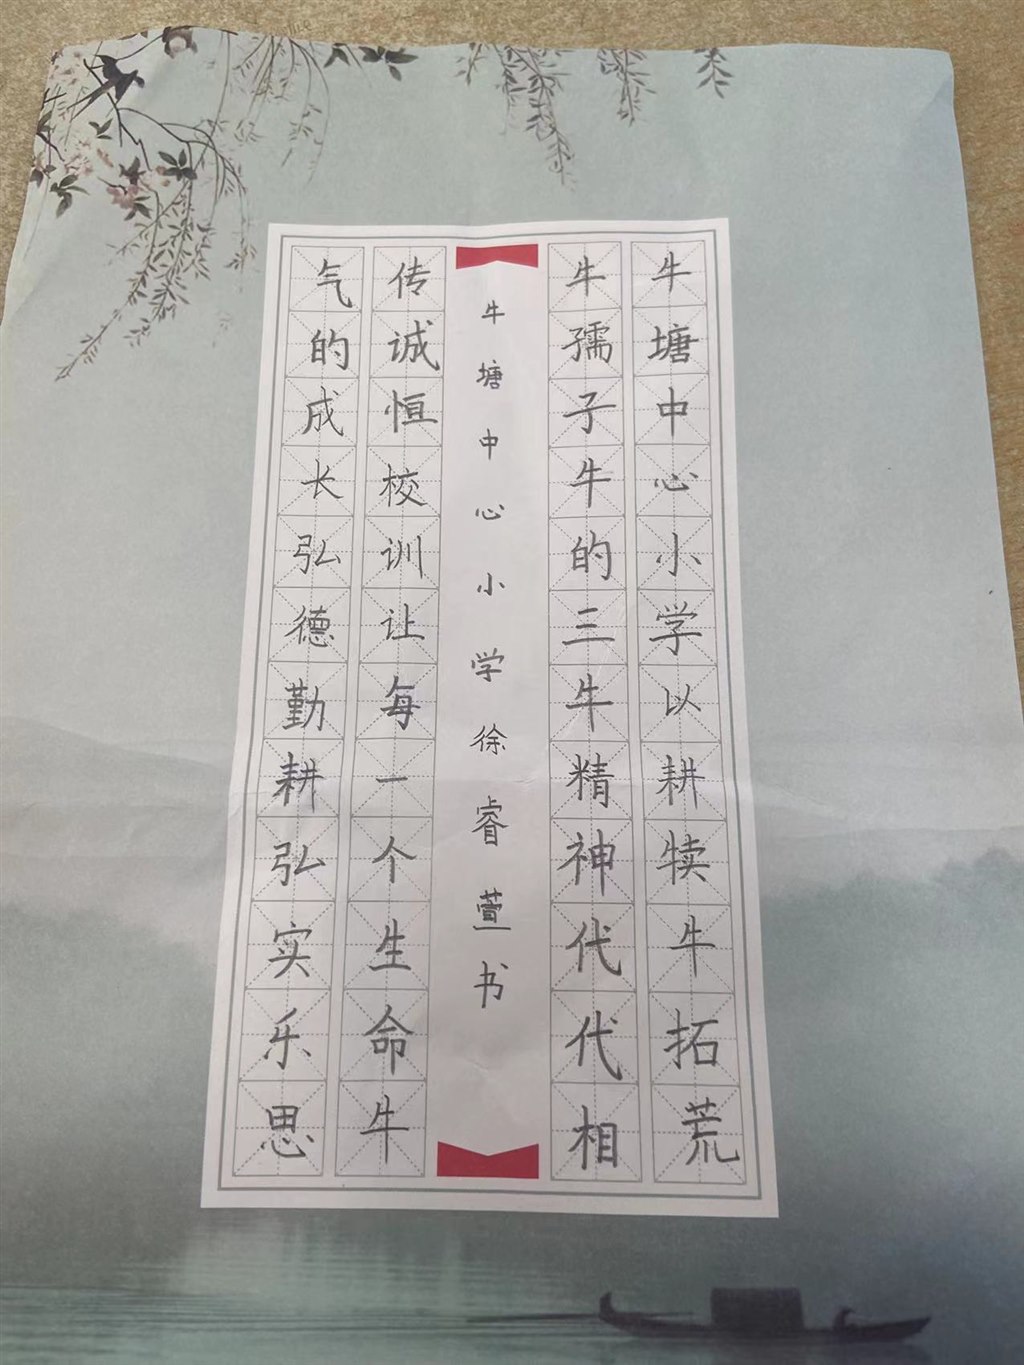 牛塘中心小学以耕犊牛拓荒
牛孺子牛的三牛精神代代相
传诚恒校训让每一个生命牛
气的成长弘德勤耕弘实乐思
牛塘中心小学徐睿萱书